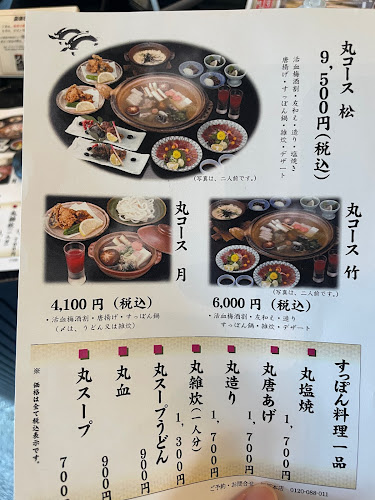 丸コース 松
9,500円(税込)
活血梅酒割・友和え・造り・塩焼き
唐揚げ・すっぽん鍋・雑炊・デザート
(写真は、二人前です。)
丸コース 月
4,100円(税込)
・活血梅酒割・唐揚・すっぽん鍋
(〆は、うどん又は雑炊)
丸コース 竹
(写真は、二人前です。)
6,000円(税込)
・活血梅酒割・友和え・造り
すっぽん鍋・雑炊・デザート
すっぽん料理一品
丸塩焼 1,700
丸唐あげ 1,700
丸造り 1,700円
丸雑炊(一人分) 1,300円
丸スープうどん 900円
丸血 900
丸スープ 700
※ 価格は全て税込表示です。
ご予約・お問合せ 0120-088-011